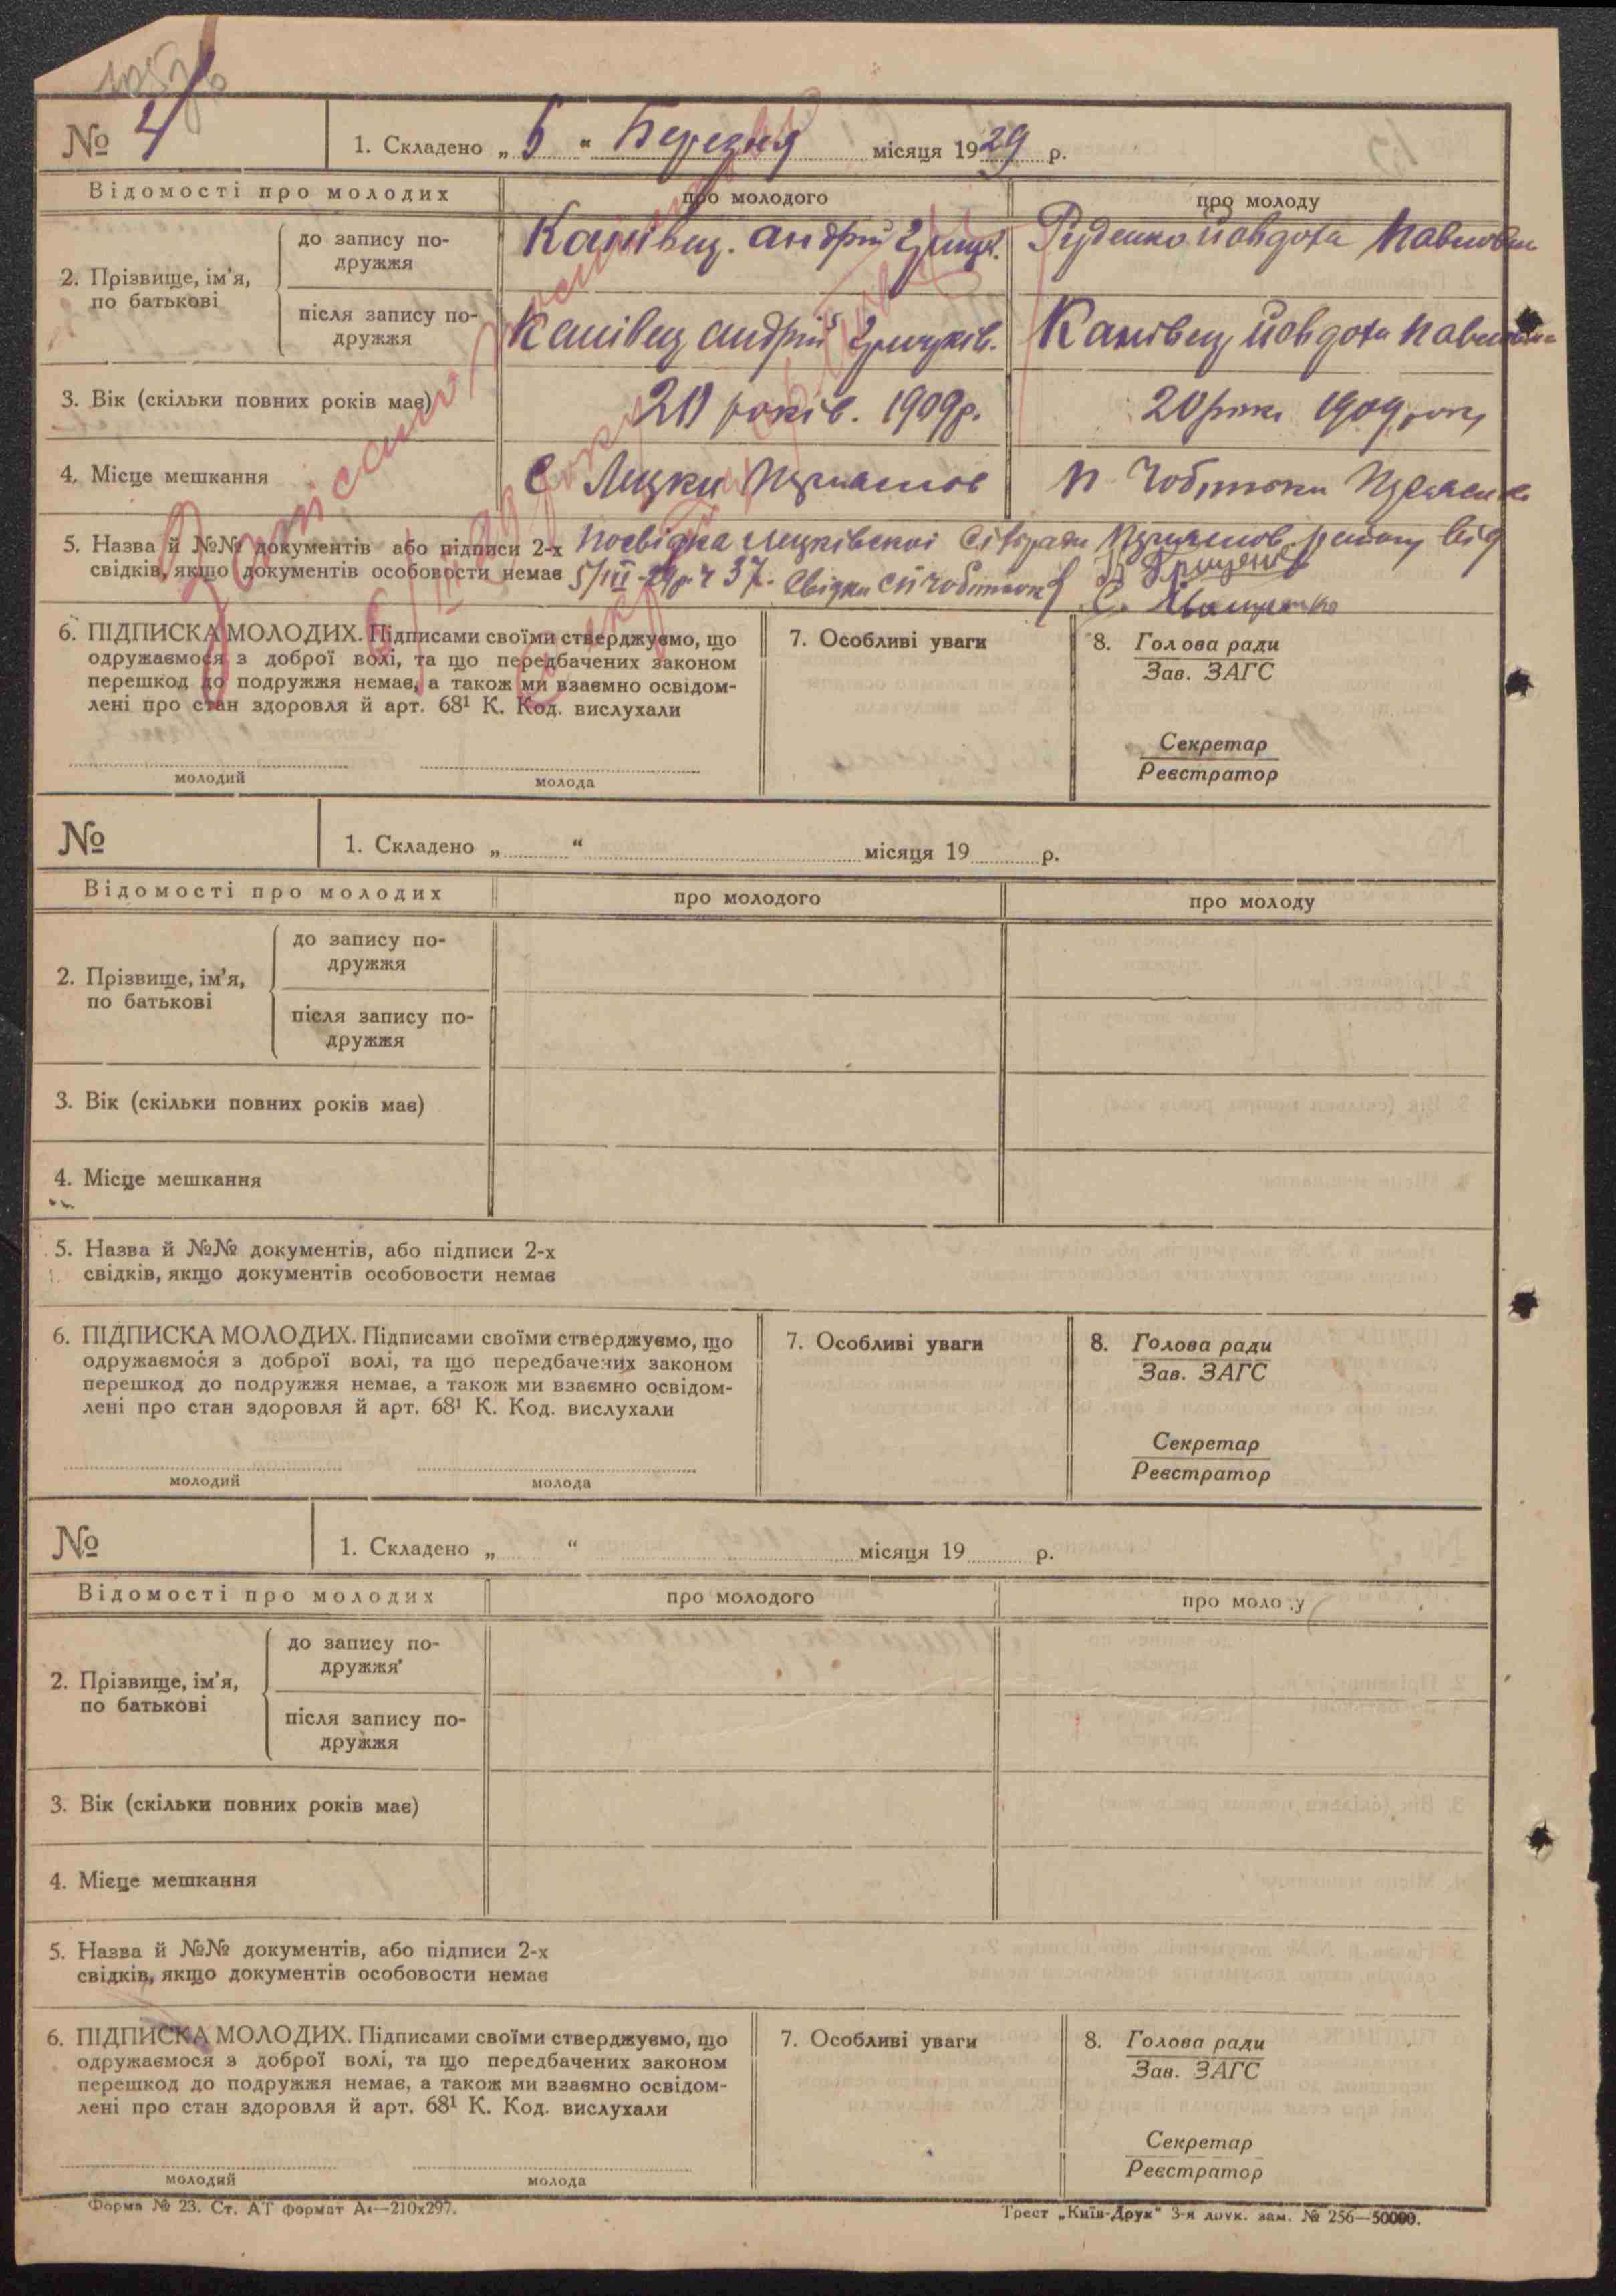 № 4
1. Складено „ 5 “ Березня місяця 1929 р.
Відомості про молодих
про молодого
про молоду
2. Прізвище, ім’я,
по батькові
до запису по-
дружжя
Канівец. Андрій
Руденко Йовдоха Павловна
після запису по-
дружжя
Канівец Андрій
Канівец Йовдоха Павловна
3. Вік (скільки повних років має)
20 років. 1909р.
20 рокі 1909 року
4. Місце мешкання
С Лецки
Чобітьки
5. Назва й №№ документів або підписи 2-х
свідків, якщо документів особовости немає
Посвідка Лецківської Сільради району від
5/III-29р. ч 37. Свідки
6. ПІДПИСКА МОЛОДИХ. Підписами своїми стверджуємо, що
одружаємося з доброї волі, та що передбачених законом
перешкод до подружжя немає, а також ми взаємно освідом-
лені про стан здоровля й арт. 68¹ К. Код. вислухали
молодий
молода
7. Особливі уваги
8. Голова ради
Зав. ЗАГС
Секретар
Реєстратор
№
1. Складено „ “ місяця 19 р.
Відомості про молодих
про молодого
про молоду
2. Прізвище, ім’я,
по батькові
до запису по-
дружжя
після запису по-
дружжя
3. Вік (скільки повних років має)
4. Місце мешкання
5. Назва й №№ документів, або підписи 2-х
свідків, якщо документів особовости немає
6. ПІДПИСКА МОЛОДИХ. Підписами своїми стверджуємо, що
одружаємося з доброї волі, та що передбачених законом
перешкод до подружжя немає, а також ми взаємно освідом-
лені про стан здоровля й арт. 68¹ К. Код. вислухали
молодий
молода
7. Особливі уваги
8. Голова ради
Зав. ЗАГС
Секретар
Реєстратор
№
1. Складено „ “ місяця 19 р.
Відомості про молодих
про молодого
про моло у
2. Прізвище, ім’я,
по батькові
до запису по-
дружжя
після запису по-
дружжя
3. Вік (скільки повних років має)
4. Місце мешкання
5. Назва й №№ документів, або підписи 2-х
свідків, якщо документів особовости немає
6. ПІДПИСКА МОЛОДИХ. Підписами своїми стверджуємо, що
одружаємося з доброї волі, та що передбачених законом
перешкод до подружжя немає, а також ми взаємно освідом-
лені про стан здоровля й арт. 68¹ К. Код. вислухали
молодий
молода
7. Особливі уваги
8. Голова ради
Зав. ЗАГС
Секретар
Реєстратор
Форма № 23. Ст. АТ формат А₄—210х297.
Трест „Київ-Друк“ 3-я друк. зам. № 256—50000.